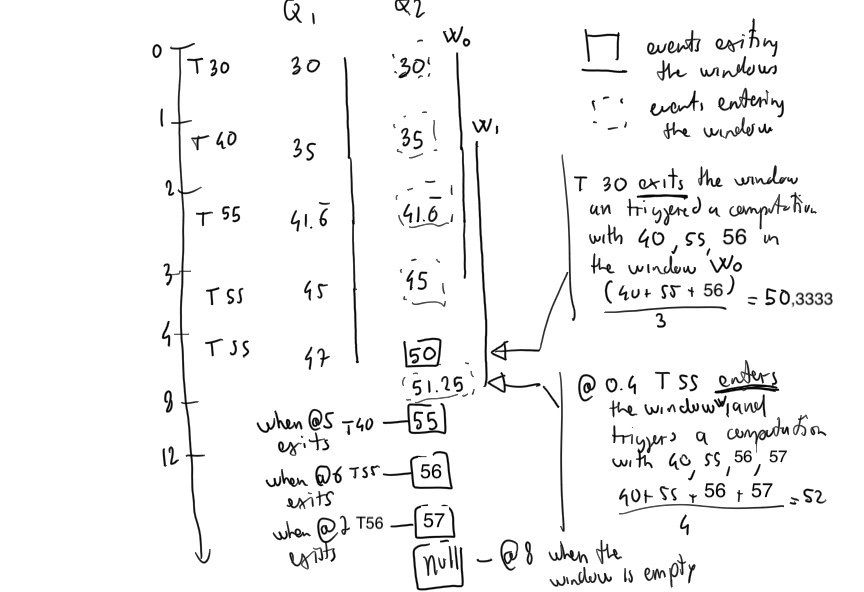 Q1 Q2
0 T 30 30 30 W0
1 T 40 35 35 W1
2 T 55 41.6̄ 41.6̄
3 T 55 45 45
4 T 55 47 50
51.25
8
12
when @5 T40 55
exits
when @6 T55 56
exits
when @7 T56 57
exists
null - @ 8 when the
window is empty
events exiting
the windows
events entering
the window
T 30 exits the window
an triggered a computation
with 40, 55, 56 in
the window W0
(40+ 55 + 56) = 50,3333
3
@ 0.4 T 55 enters
the window W1 and
triggers a computation
with 40, 55, 56, 57
40+ 55 + 56 + 57 = 52
4